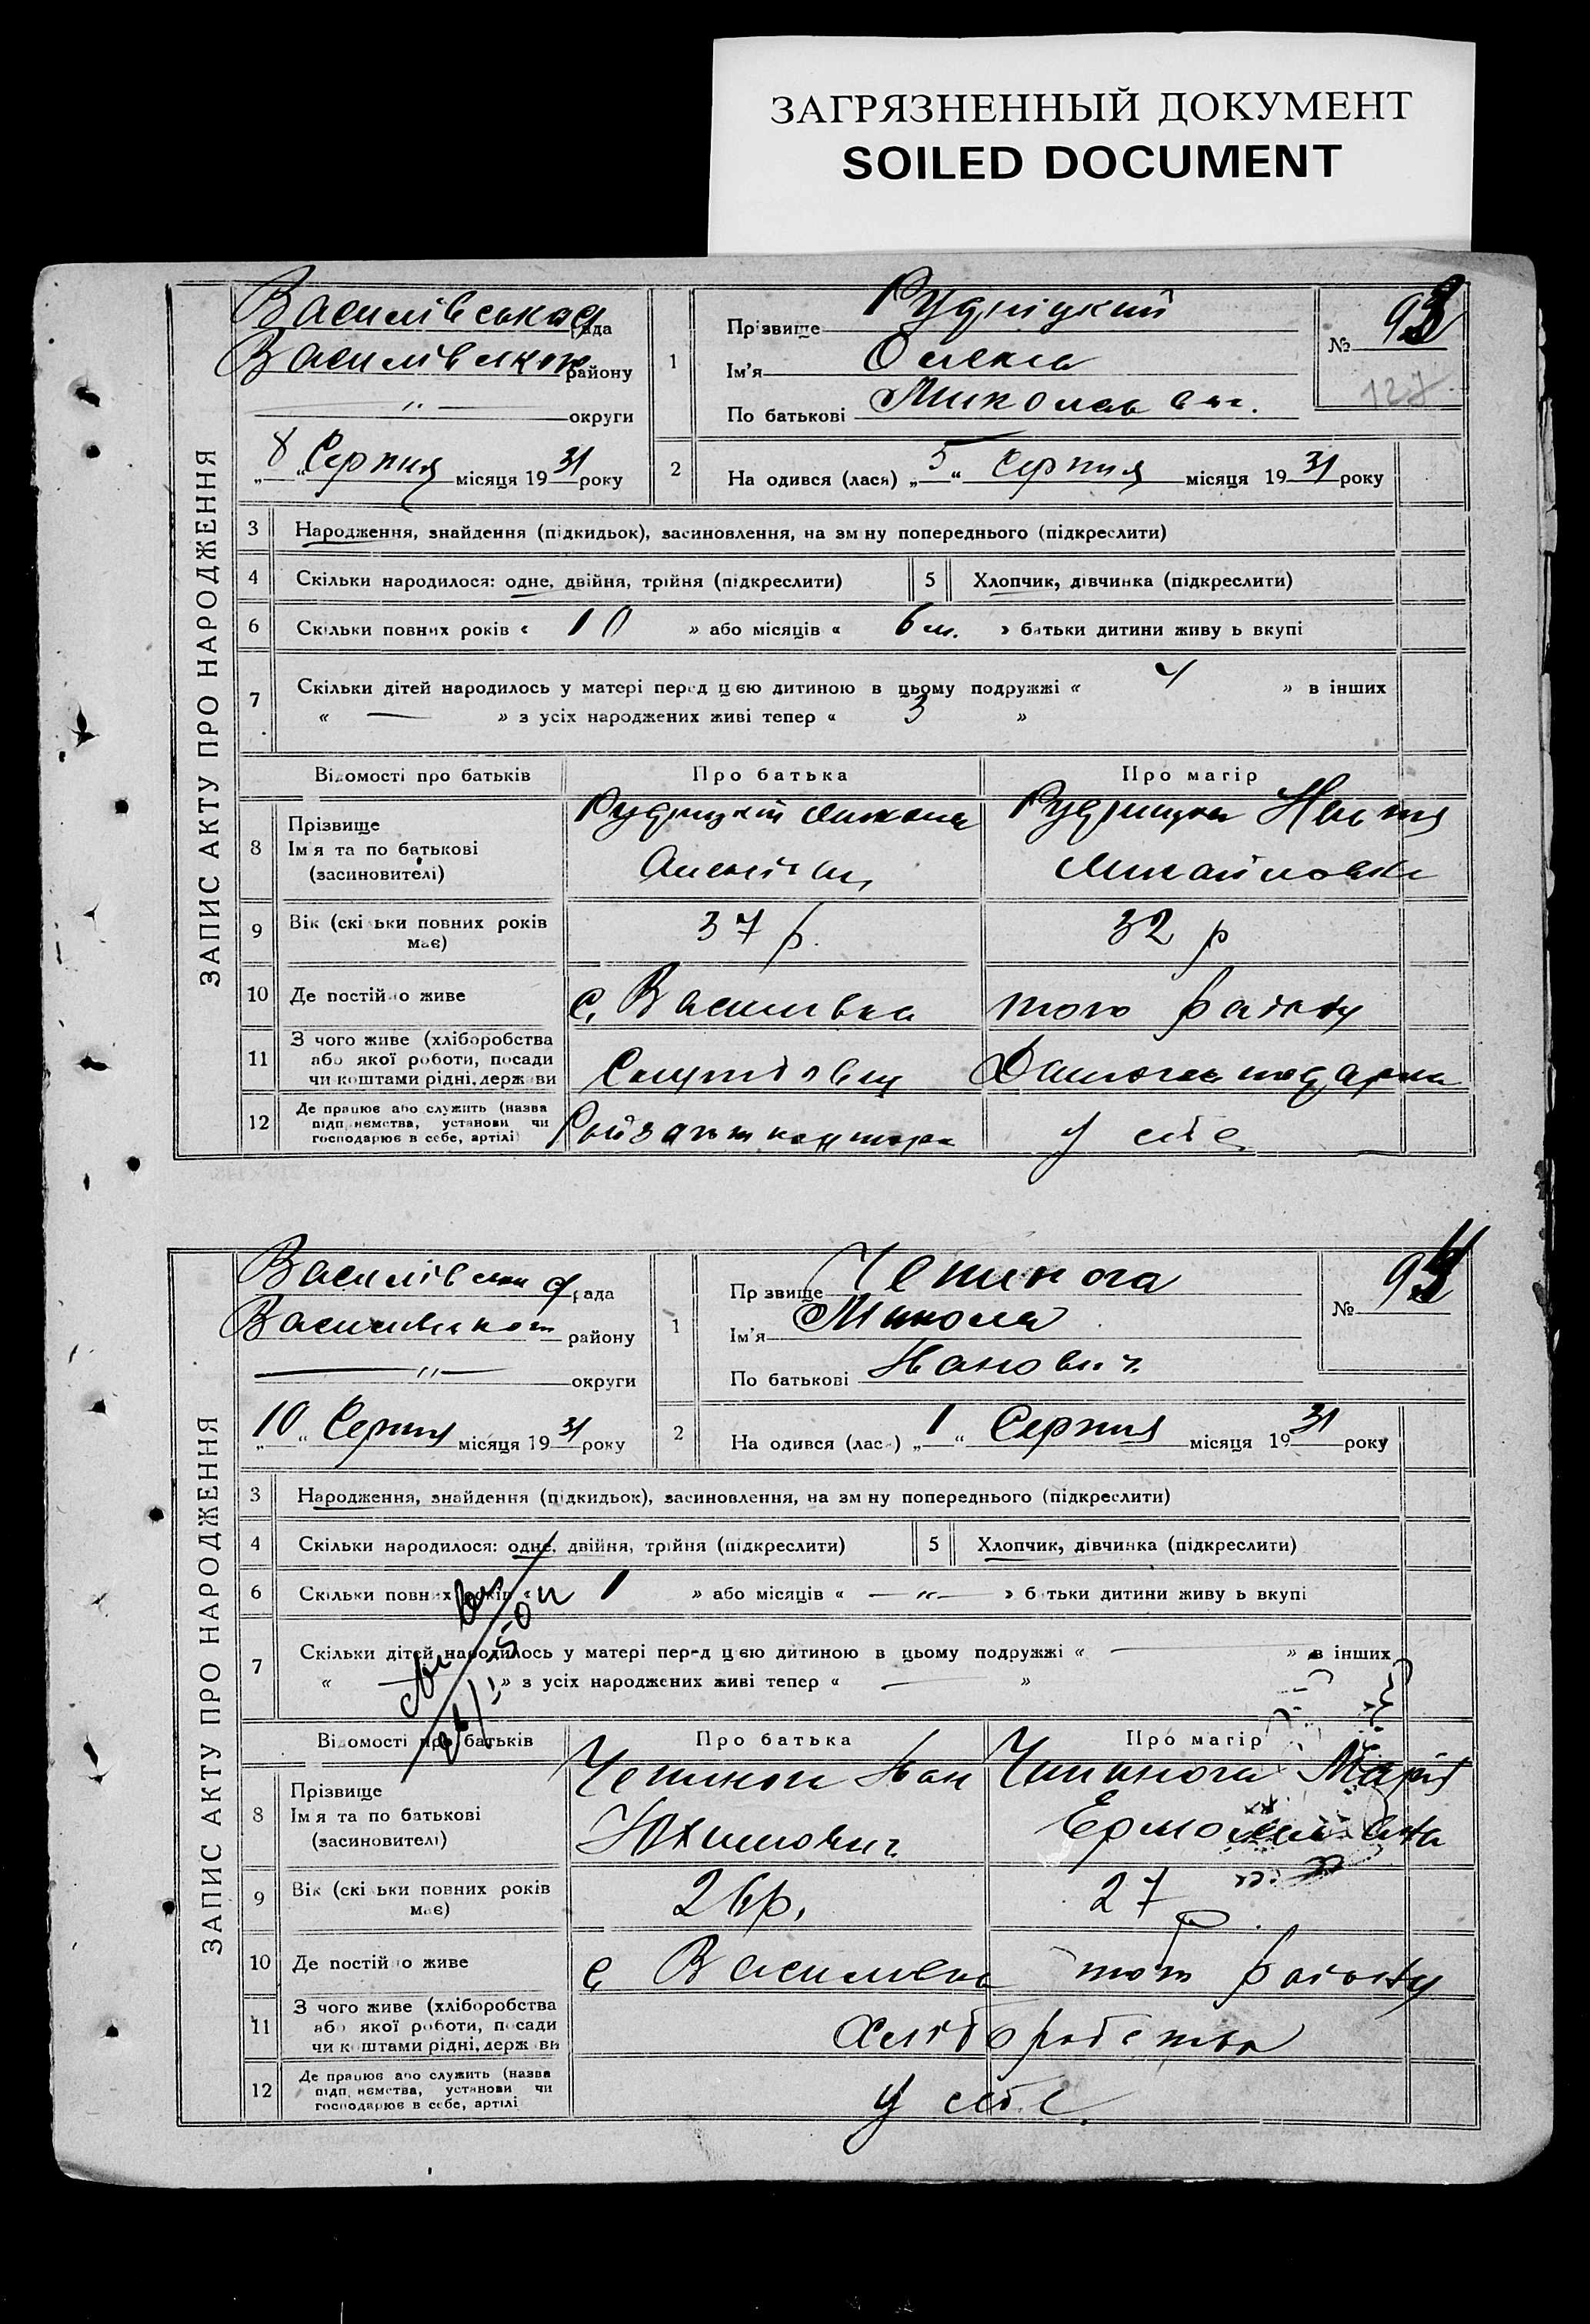 ЗАГРЯЗНЕННЫЙ ДОКУМЕНТ
SOILED DOCUMENT
ЗАПИС АКТУ ПРО НАРОДЖЕННЯ
Василівська рада
району
" округи
„8“ Серпня місяця 1931 року
1
Прізвище Рудніцкий
Ім'я Олекса
По батькові
№ 93
127
2
На одився (лася) „5“ Серпня місяця 1931 року
3 Народження, знайдення (підкидьок), засиновлення, на зм ну попереднього (підкреслити)
4 Скільки народилося: одне, двійня, трійня (підкреслити)
5 Хлопчик, дівчинка (підкреслити)
6 Скільки повних років « 10 » або місяців « 6 м. » батьки дитини живу ь вкупі
7 Скільки дітей народилось у матері перед цею дитиною в цьому подружжі « 4 » в інших
« — » з усіх народжених живі тепер « 3 »
Відомості про батьків
Про батька
Про матір
8 Прізвище
Ім я та по батькові
(засновителі)
Михайловна
9 Вік (скі ьки повних років має)
37 р.
32 р
10 Де постійно живе
с. Василівка
того району
11 З чого живе (хліборобства
або якої роботи, посади
чи коштами рідні, держави
12 Де працює або служить (назва
підприємства, установи чи
господарює в себе, артілі)
у себе
ЗАПИС АКТУ ПРО НАРОДЖЕННЯ
рада
району
" округи
„10“ Серпня місяця 1931 року
1
Пр звище Чепинога
Ім'я Микола
По батькові Іванович
№ 94
2
На одився (лася) „1“ Серпня місяця 1931 року
3 Народження, знайдення (підкидьок), засиновлення, на зм ну попереднього (підкреслити)
4 Скільки народилося: одне, двійня, трійня (підкреслити)
5 Хлопчик, дівчинка (підкреслити)
6 Скільки повних років « 1 » або місяців « — » батьки дитини живу ь вкупі
7 Скільки дітей народилось у матері перед цею дитиною в цьому подружжі « — » в інших
« » з усіх народжених живі тепер « — »
Відомості про батьків
Про батька
Про матір
8 Прізвище
Ім я та по батькові
(засновителі)
Чепинога Іван
Чепинога Марія
9 Вік (скі ьки повних років має)
26 р.
27 р.
10 Де постійно живе
с Василівка
того району
11 З чого живе (хліборобства
або якої роботи, посади
чи коштами рідні, держави
Хліборобства
12 Де працює або служить (назва
підприємства, установи чи
господарює в себе, артілі
у себе